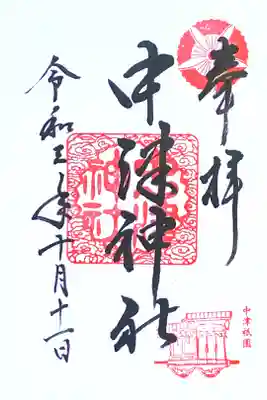 奉拝
中津神社
令和三年十月十一日
中津祇園